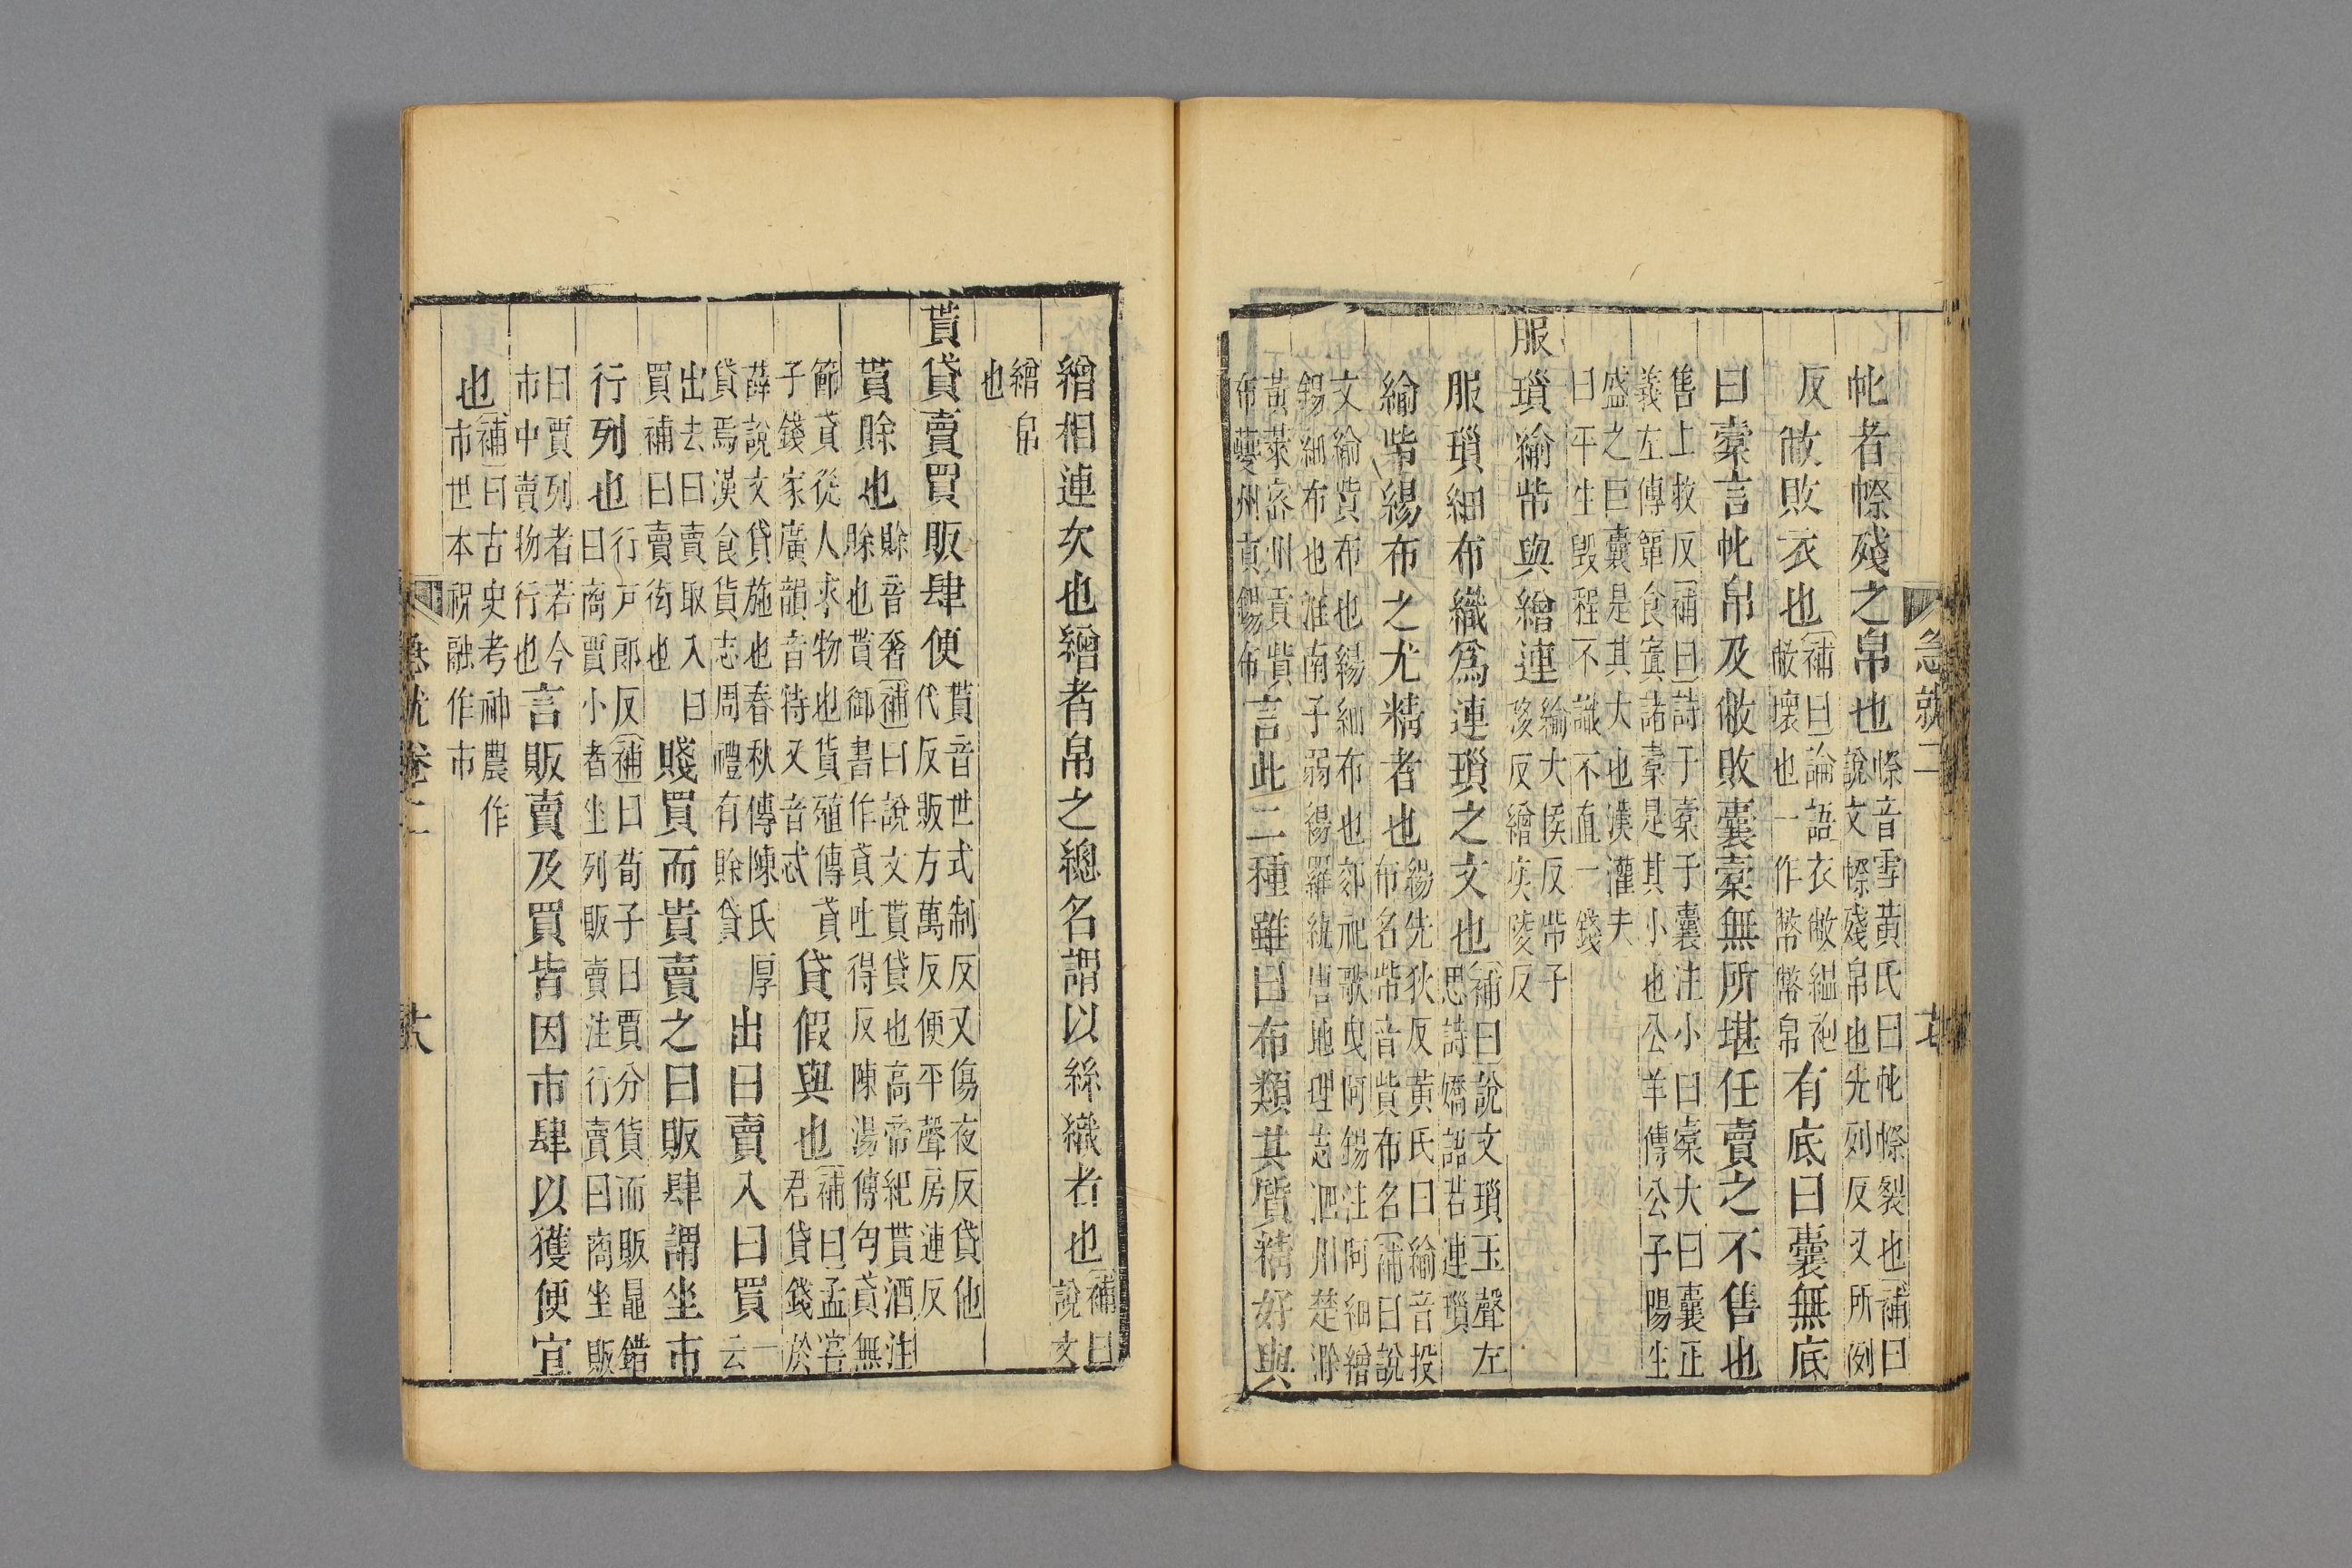 急就二
帊者㡜殘之帛也㡜音雪黃氏曰帊㡜裂也補曰說文㡜殘帛也先列反又所例
反敝敗衣也補曰論語衣敝縕袍敝壞也一作幣幣帛有底曰囊無底
曰橐言帊帛及敝敗囊橐無所堪任賣之不售也
售上救反補曰詩于橐于囊注小曰橐大曰囊正義左傳簞食寘諸橐是其小也公羊傳公子陽生
盛之巨囊是其大也漢灌夫曰平生毀程不識不直一錢
服瑣緰㠿與繒連緰大侯反㠿子移反繒疾陵反
服瑣細布織爲連瑣之文也補曰說文瑣玉聲左思詩嬌語若連瑣
緰㠿緆布之尤精者也緆先狄反黃氏曰緰音投布名㠿音貲布名補曰說
文緰貲布也緆細布也郊祀歌曳阿錫注阿細繒錫細布也淮南子弱緆羅紈唐地理志泗川楚滁
黃萊密州貢貲布夔州貢錫布言此二種雖曰布類其質精好與
繒相連次也繒者帛之總名謂以絲織者也補曰說文
繒帛也
貰貸賣買販肆便貰音世式制反又傷夜反貸他代反販方萬反便平聲房連反
貰賖也賖音奢補曰說文貰貸也高帝紀貰酒注賖也貰御書作貣吐得反陳湯傳匄貣無
節貣從人求物也貨殖傳貣子錢家廣韻音待又音忒貸假與也補曰孟嘗君貸錢於
薛說文貸施也春秋傳陳氏厚貸焉漢食貨志周禮有賖貸出曰賣入曰買一云
出去曰賣取入曰買補曰賣衒也賤買而貴賣之曰販肆謂坐市
行列也行戸郎反補曰荀子曰賈分貨而販鼂錯曰商賈小者坐列販賣注行賣曰商坐販
曰賈列者若今市中賣物行也言販賣及買皆因市肆以獲便宜
也補曰古史考神農作市世本祝融作市
急就卷二